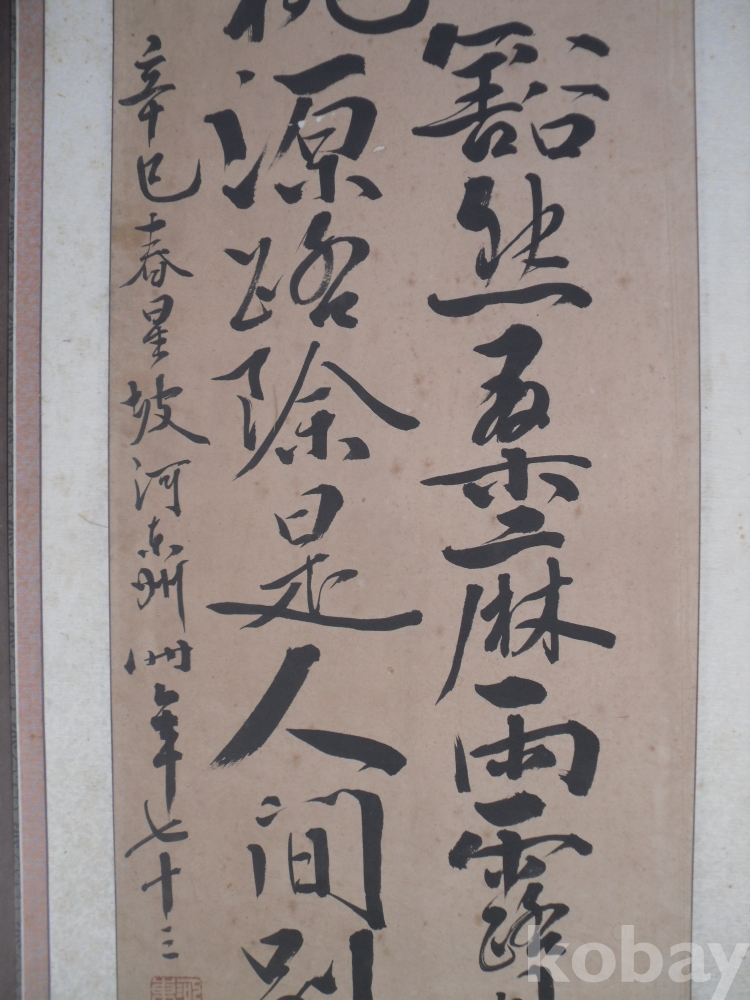 豁然桑麻雨露
桃源路除是人間別
辛巳春星坡河東州時年七十三
kobay